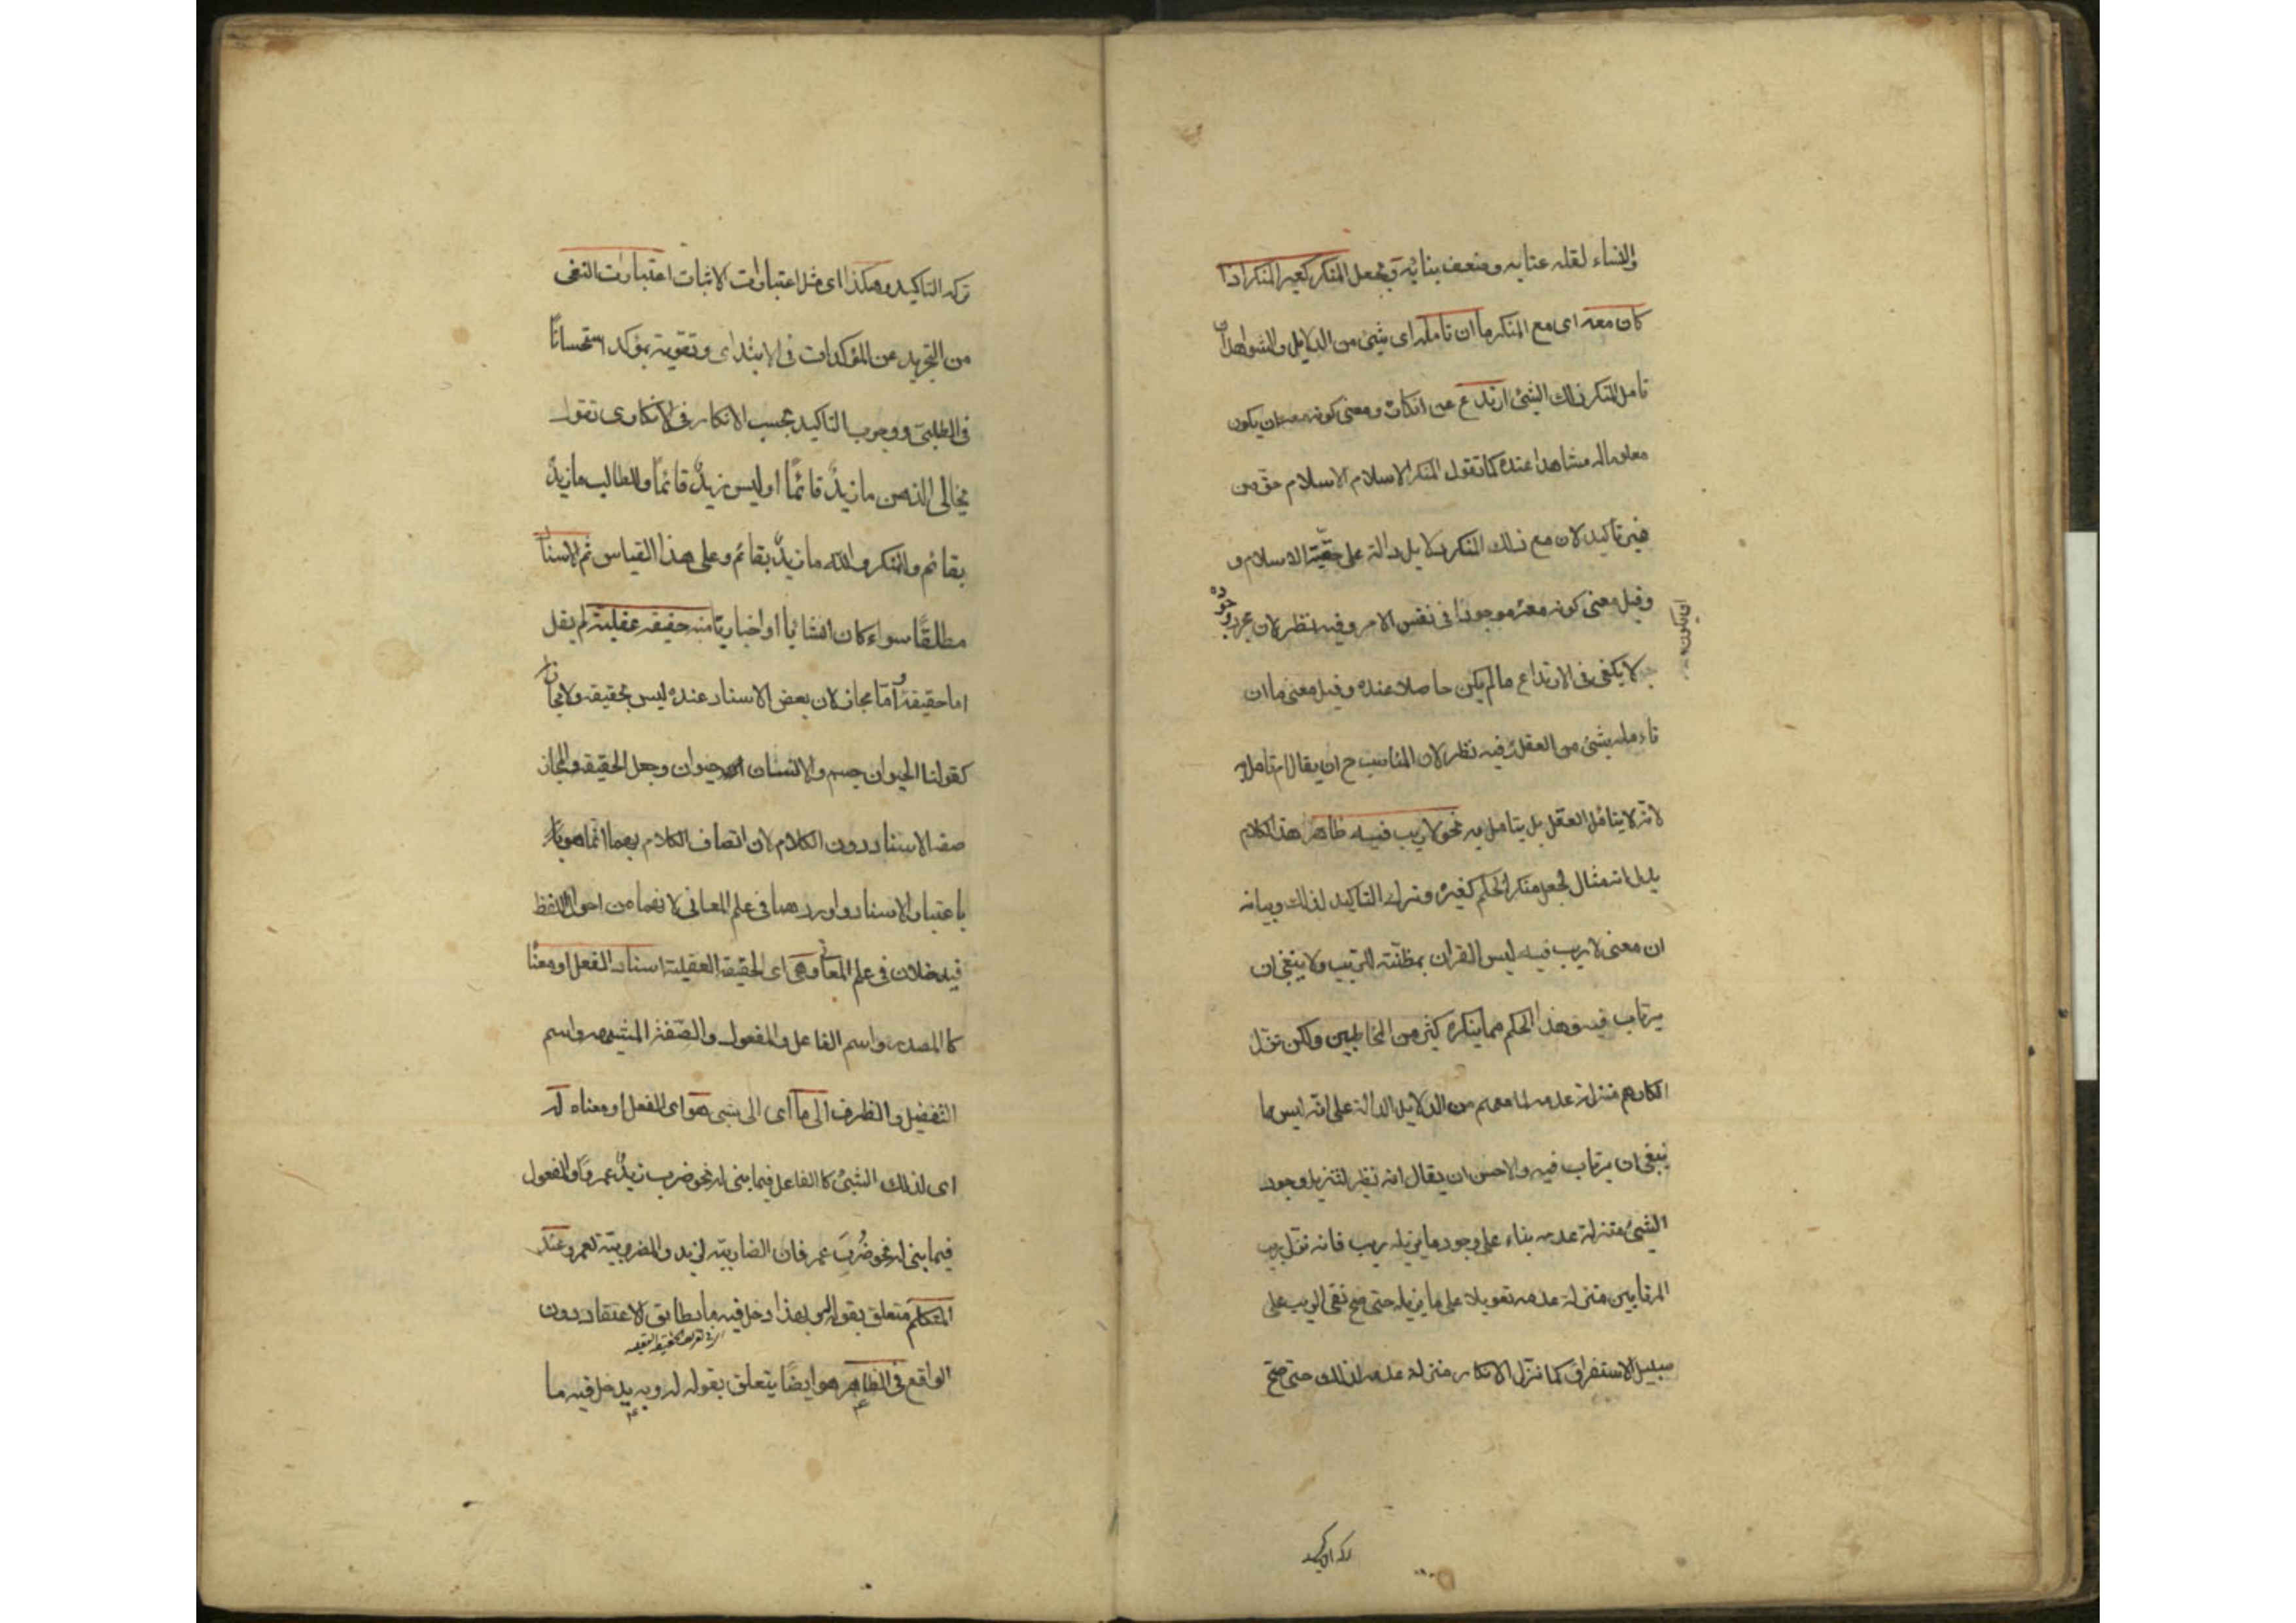 والنساء لقلة عنايه وضعف بنائه ويجعل المنكر كغير المنكر اذا
كان معه اى مع المنكر ما ان تامله اى شيئ من الدلايل والشواهد ان
تامل المنكر ذلك الشيئ ارتدع عن انكاره ومعنى كونه معه ان يكون
معلوما له مشاهدا عنده كما تقول لمنكر الاسلام الاسلام حق من
غير تاكيد لان مع ذلك المنكر دلايل دالة على حقّيّة الاسلام و
وقيل معنى كونه معه موجودا فى نفس الامر وفيه نظر لان مجرد وجوده
لا يكفى فى الارتداع ما لم يكن حاصلا عنده وقيل معنى ما ان
تاءمله شيئ من العقل وفيه نظر لان المناسب ح ان يقال ان تامل به
لانه لا يتامل العقل بل يتامل به نحو لا ريب فيه ظاهر هذا الكلام
يدل انه مثال لجعل منكر الحكم كغيره وترك التاكيد لذلك وبيانه
ان معنى لا ريب فيه ليس القران بمظنّة للريب ولا ينبغى ان
يرتاب فيه وهذا الحكم مما ينكره كثير من المخاطبين ولكن نزّل
انكارهم منزلة عدمه لما معهم من الدلايل الدالة على انّه ليس مما
ينبغى ان يرتاب فيه والاحسن ان يقال انه نظير لتنزيل وجود
الشيئ منزلة عدمه بناء على وجود ما يزيله ريب فانه نزّل ريب
المرتابين منزلة عدمه تعويلا على ما يزيله حتى صح نفى الريب على
سبيل الاستغراق كما نزّل الانكار منزلة عدمه لذلك حتى صحّ
ترك التاكيد
ترك التاكيد وهكذا اى مثل اعتبارات الاثبات اعتبارات النفى
من التجريد عن المؤكدات فى الابتداى وتقوية بمؤكد استحسانًا
فى الطلبىّ ووجوب التاكيد بحسب الانكار فى الانكارى تقول
لخالى الذهن ما زيدٌ قائمًا او ليس زيدٌ قائمًا وللطالب ما زيدٌ
بقائم وللمنكر والله ما زيدٌ بقائم وعلى هذا القياس ثم الاسناد
مطلقًا سواء كان انشائيا او اخباريّا منه حقيقة عقلية لم يقل
اما حقيقة وامّا مجاز لان بعض الاسناد عنده ليس بحقيقة ولا مجاز
كقولنا الحيوان جسم والانسان حيوان وجعل الحقيقة والمجاز
صفة الاسناد دون الكلام لان اتصاف الكلام بهما انّما هو
باعتبار الاسناد واوردهما فى علم المعانى لانهما من احوال اللفظ
فيدخلان فى علم المعانى وهى اى الحقيقة العقلية اسناد الفعل او معناه
كالمصدر واسم الفاعل والمفعول والصّفة المشبهه واسم
التفضيل والظرف الى ما اى الى شيئ هو اى الفعل او معناه له
اى لذلك الشيئ كالفاعل فيما بنى له نحو ضرب زيدٌ عمروًا والمفعول
فيما بنى له نحو ضُرِبَ عمر فان الضاربيّة لزيد والمضروبيّة لعمرو عند
المتكلم متعلق بقوله له وبهذا دخل فيه ما يطابق الاعتقاد دون
الواقع فى الظاهر هو ايضًا يتعلق بقوله له وبه يدخل فيه ما